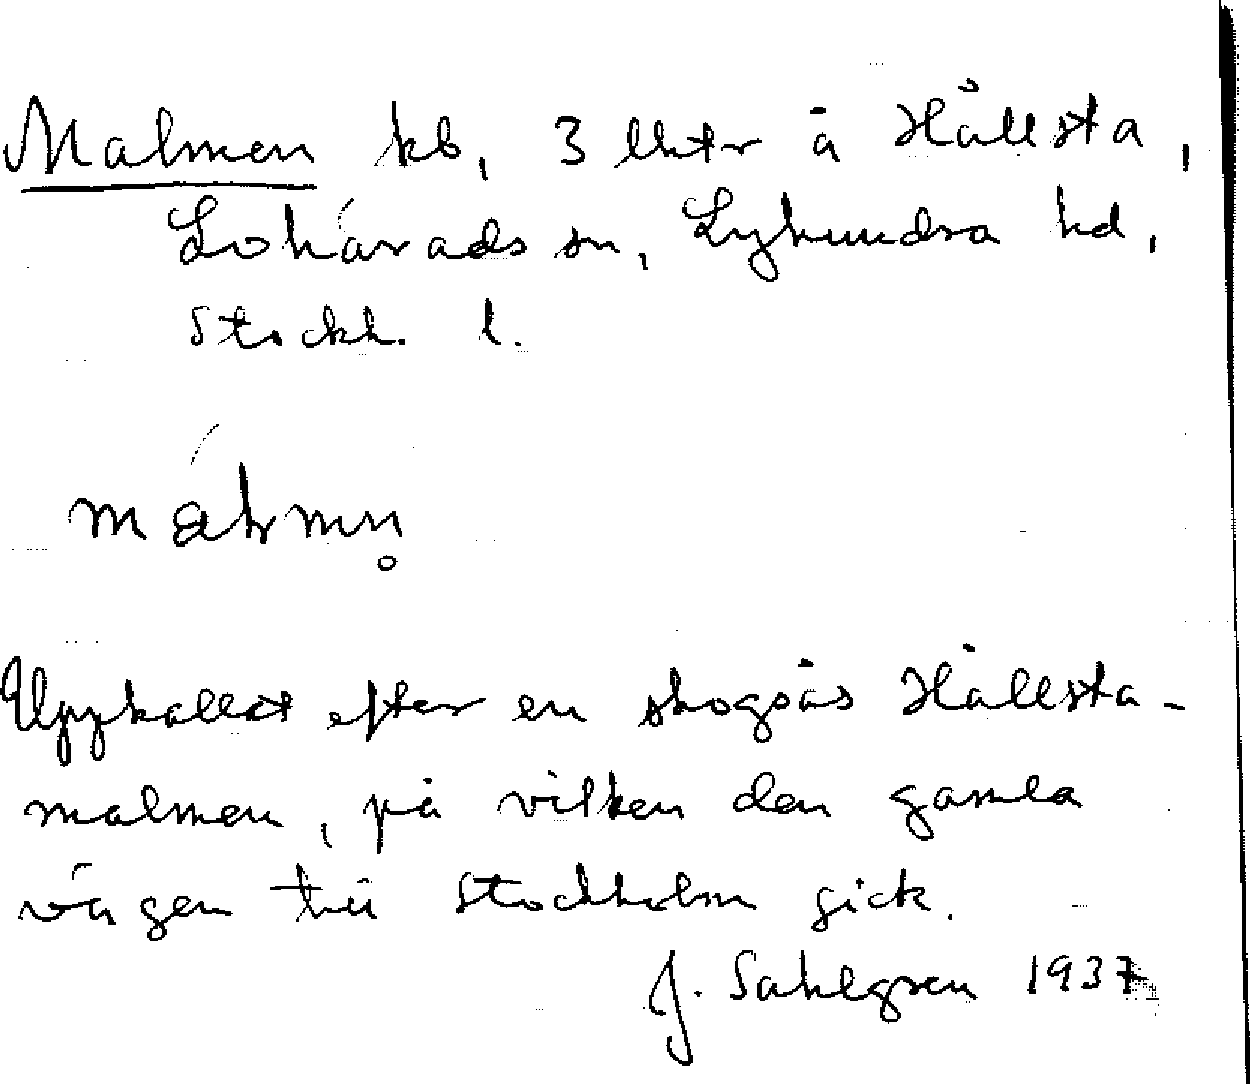 Malmen kb, 3 lhtr å Hållsta,
Lohärads sn, Lyhundra hd,
Stockh. l.
Uppkallat efter en skogsås Hållsta-
malmen, på vilken den gamla
vägen till Stockholm gick.
J. Sahlgren 1937